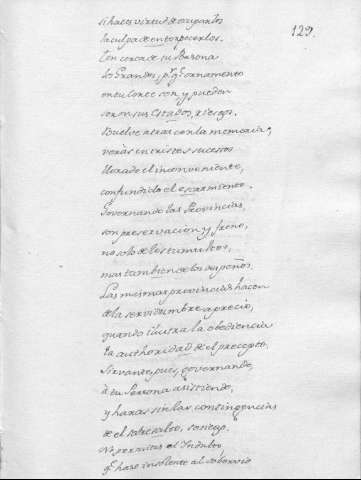 129.
si haces virtud de ocuparlos
la culpa de entorpecerlos.
Ten cerca de tu Persona
los Grandes, pr. qe. ornamento
entonces son, y pueden
ser en sus Estados, riesgo.
Buelve atras con la memoria,
veràs en tristes sucesos
llorado el inconveniente,
confundido el escarmiento.
Governando las Provincias,
son preservacion, y freno,
no solo de los tumultos,
mas tambien de los empeños.
Las mismas provincias hacen
de la servidumbre aprecio,
quando ilustra la obediencia
la authoridad de el precepto.
Sirvante, pues, governando,
à tu Persona asistiendo,
y haràs sin las contingencias
de el sobresalto, sosiego.
No permitas el Indulto
qe. hace insolente al sobervio